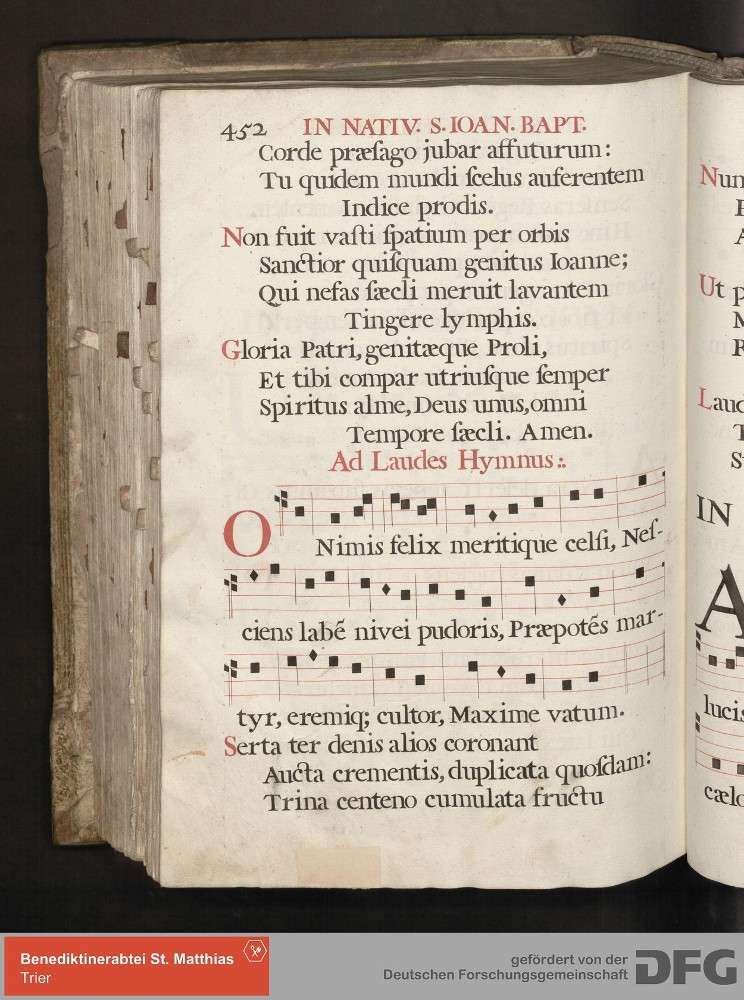 452 IN NATIV. S. IOAN. BAPT.
Corde præſago jubar affuturum:
Tu quidem mundi ſcelus auferentem
Indice prodis.
Non fuit vaſti ſpatium per orbis
Sanctior quiſquam genitus Ioanne;
Qui nefas ſæcli meruit lavantem
Tingere lymphis.
Gloria Patri, genitæque Proli,
Et tibi compar utriuſque ſemper
Spiritus alme, Deus unus, omni
Tempore ſæcli. Amen.
Ad Laudes Hymnus:.
O Nimis felix meritique celſi, Neſ-
ciens labẽ nivei pudoris, Præpotẽs mar-
tyr, eremiq; cultor, Maxime vatum.
Serta ter denis alios coronant
Aucta crementis, duplicata quoſdam:
Trina centeno cumulata fructu
Ut
IN
A
lucis
Benediktinerabtei St. Matthias
Trier
gefördert von der
Deutschen Forschungsgemeinschaft
DFG